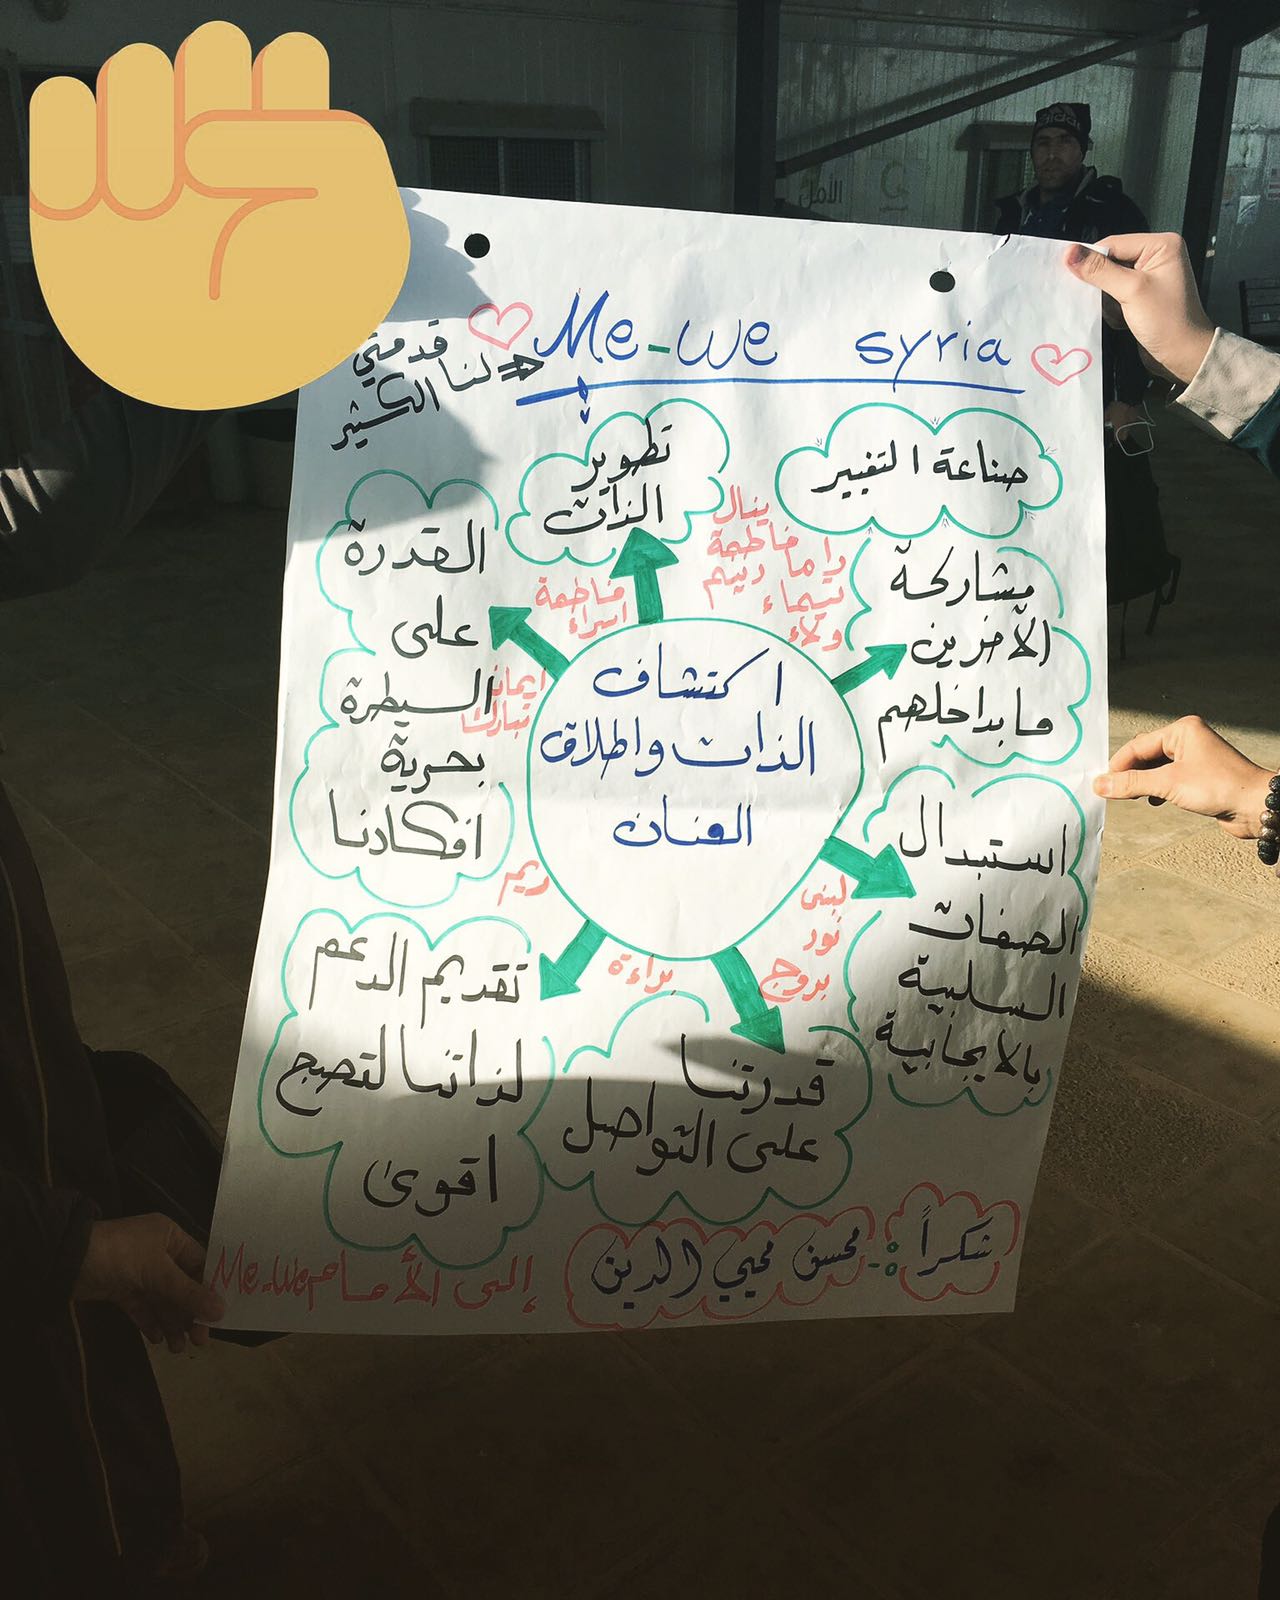 Me-We syria
قدمتي
لنا
الكثير
صناعة التغيير
تطوير
الذات
القدرة
على
السيطرة
بحرية
افكارنا
مشاركة
الآخرين
ما بداخلهم
ينال
فاطمة
راما
ريم
شيماء
ولاء
فاطمة
اسراء
ايمان
تبارك
اكتشاف
الذات واطلاق
العنان
استبدال
الصفات
السلبية
بالايجابية
ريم
لبنى
نور
بروج
براءة
تقديم الدعم
لذاتنا لتصبح
اقوى
قدرتنا
على التواصل
شكراً :- محسن محيي الدين
إلى الأمام Me-We
الأمل
adidas